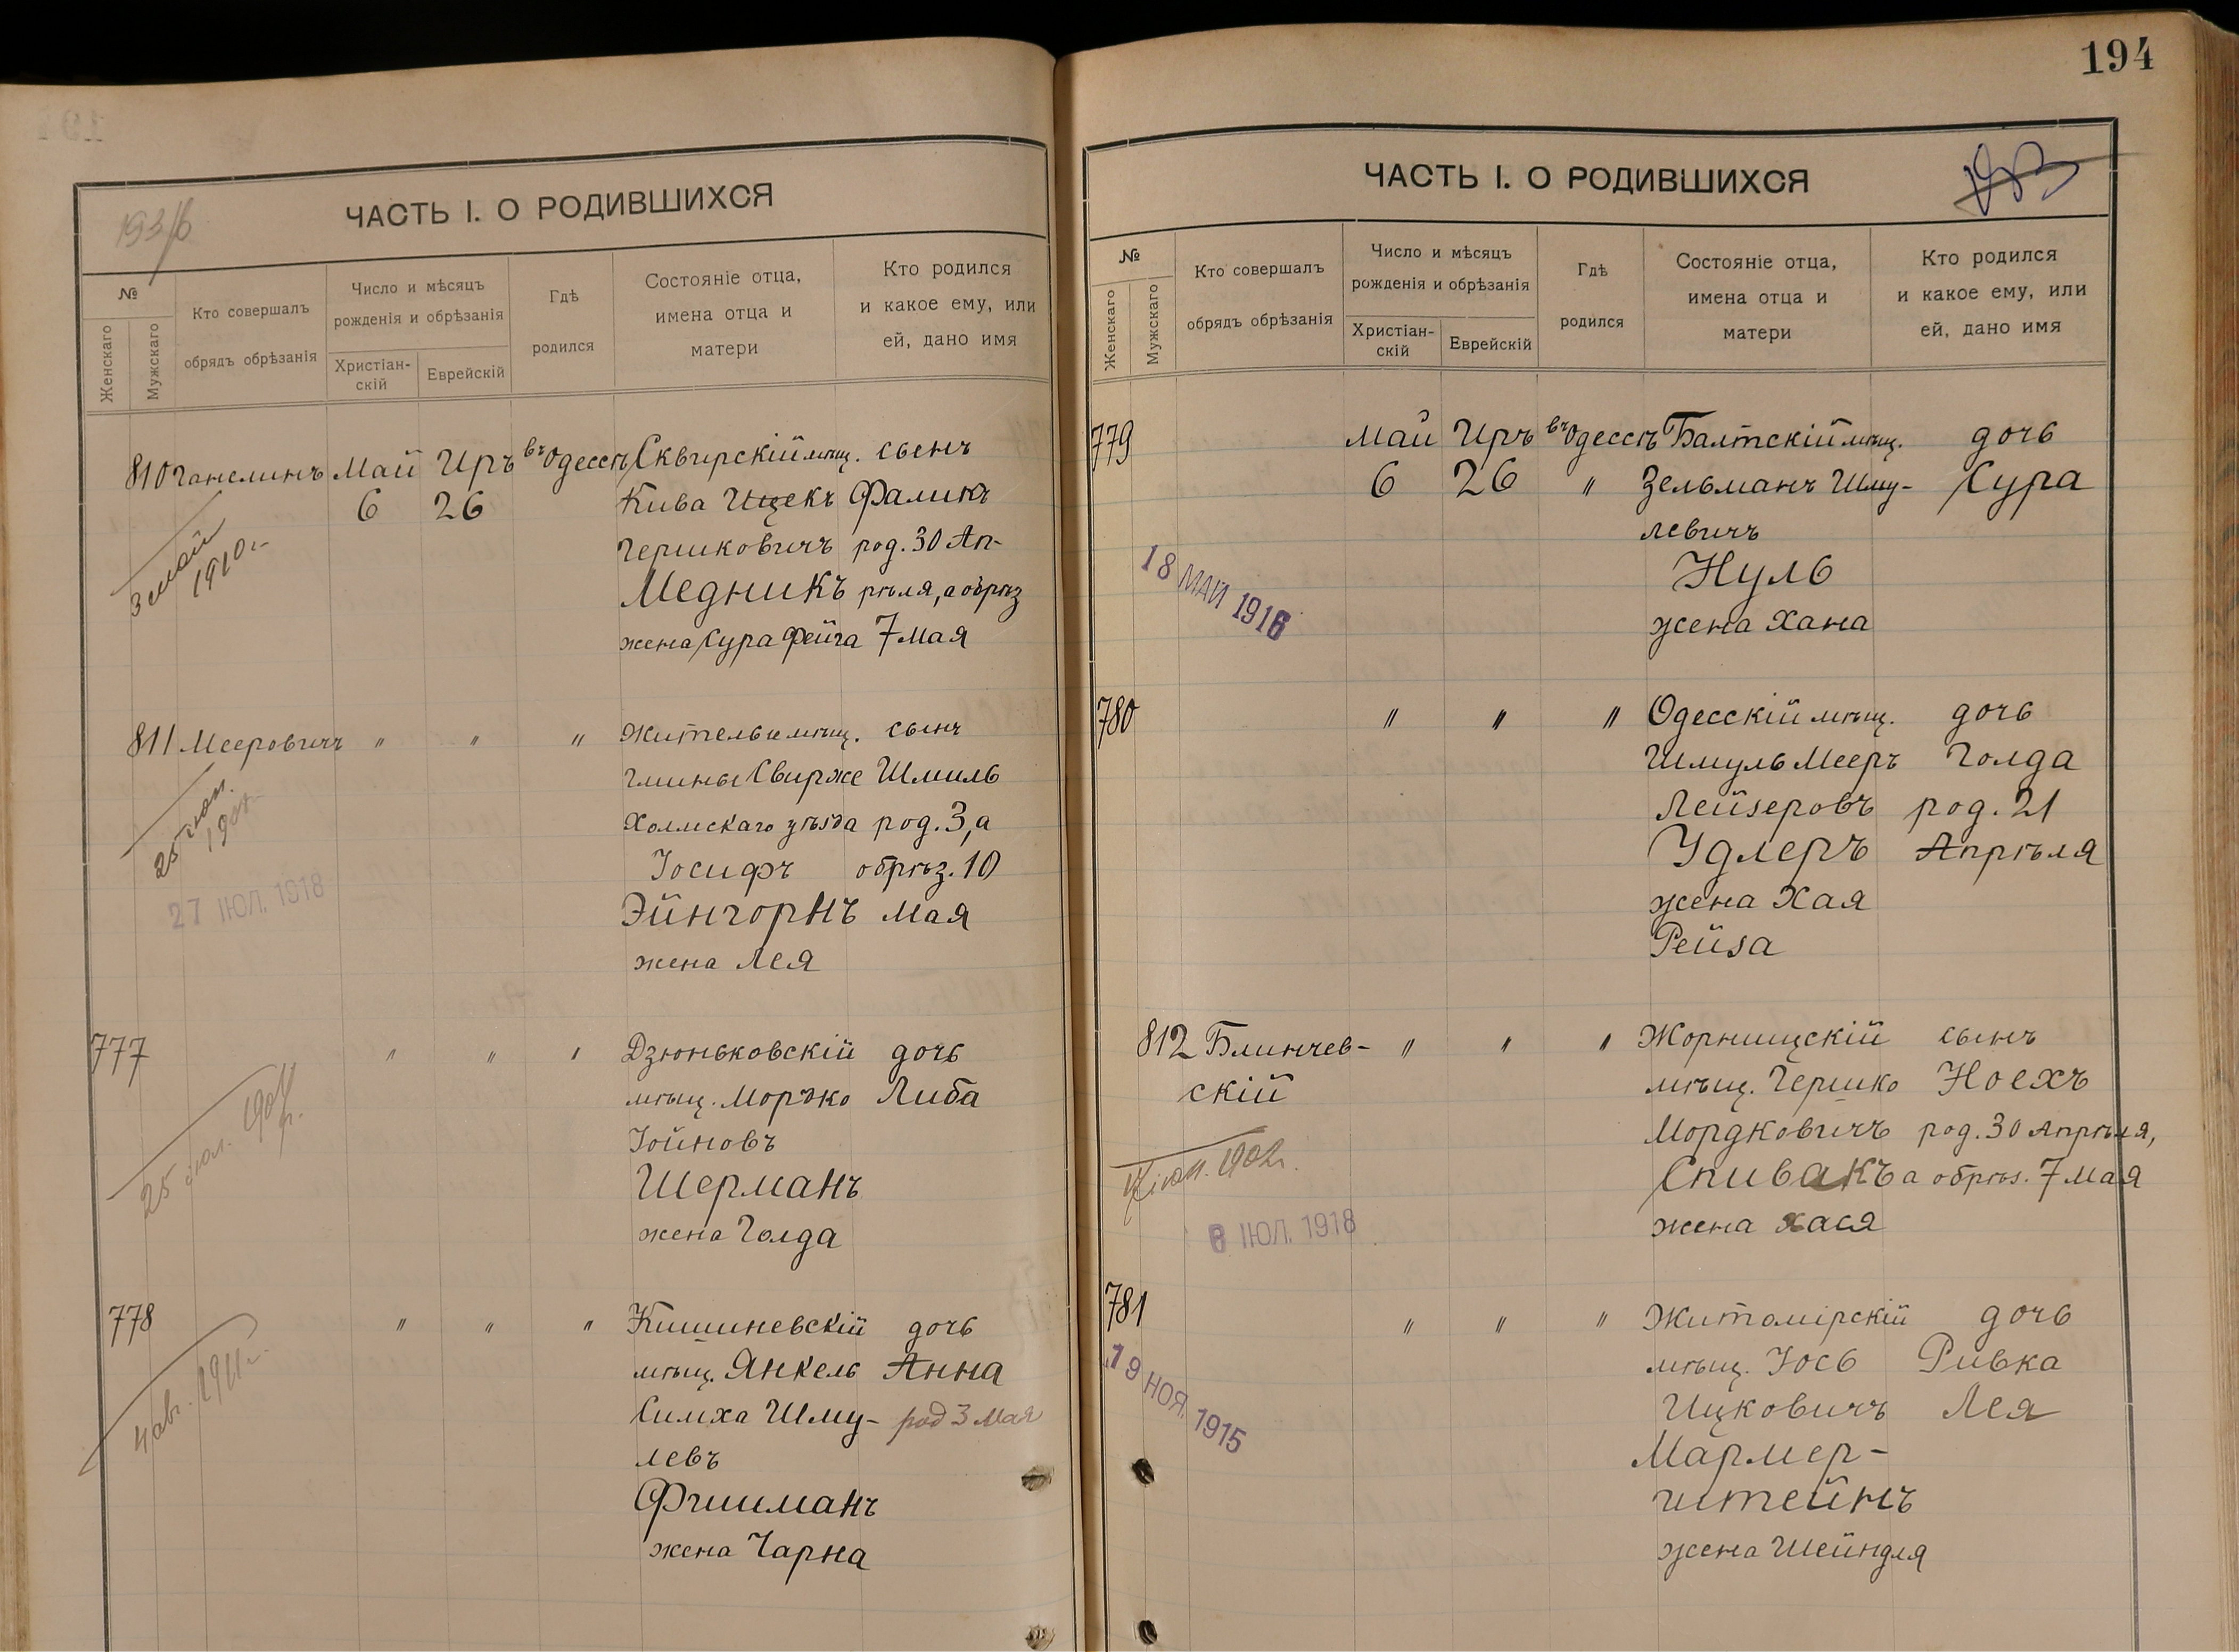 194
ЧАСТЬ I. О РОДИВШИХСЯ
193/б
№
Женскаго
Мужскаго
Кто совершалъ
обрядъ обрѣзанія
Число и мѣсяцъ
рожденія и обрѣзанія
Христіан-
скій
Еврейскій
Гдѣ
родился
Состояніе отца,
имена отца и
матери
Кто родился
и какое ему, или
ей, дано имя
810 Ганелинъ Май Иръ въ Одессѣ Сквирскій мѣщ. сынъ
6 26 Кива Ицекъ Фаликъ
Гершковичъ род. 30 Ап-
Медникъ рѣля, а обрѣз
жена Сура Фейга 7 Мая
3 май
1910 г.
811 Мееровичъ " " " Житель и мѣщ. сынъ
гмины Свирже Шмиль
Холмскаго уѣзда род. 3, а
Іосифъ обрѣз. 10
Эйнгорнъ Мая
жена Лея
27 ІЮЛ. 1918
777 " " " Дзюньковскій дочь
мѣщ. Мошко Либа
Іойновъ
Шерманъ
жена Голда
778 " " " Кишиневскій дочь
мѣщ. Янкель Анна
Симха Шму- род 3 Мая
левъ
Фишманъ
жена Чарна
4 авг. 1911 г.
ЧАСТЬ I. О РОДИВШИХСЯ
№
Женскаго
Мужскаго
Кто совершалъ
обрядъ обрѣзанія
Число и мѣсяцъ
рожденія и обрѣзанія
Христіан-
скій
Еврейскій
Гдѣ
родился
Состояніе отца,
имена отца и
матери
Кто родился
и какое ему, или
ей, дано имя
779 Май Иръ въ Одессѣ Балтскій мѣщ. дочь
6 26 " Зельманъ Шму- Сура
левичъ
Нуль
жена Хана
18 МАЙ 1916
780 " " " Одесскій мѣщ. дочь
Шмуль Мееръ Голда
Лейзеровъ род. 21
Удлеръ Апрѣля
жена Хая
Рейза
812 Блинчев- " " " Жорнищскій сынъ
скій мѣщ. Гершко Ноехъ
Мордковичъ род. 30 Апрѣля,
Спивакъ а обрѣз. 7 Мая
жена Хася
ІЮЛ. 1918
781 " " " Житомірскій дочь
мѣщ. Іось Ривка
Ицковичъ Лея
Мармер-
штейнъ
жена Шейндля
19 НОЯ. 1915